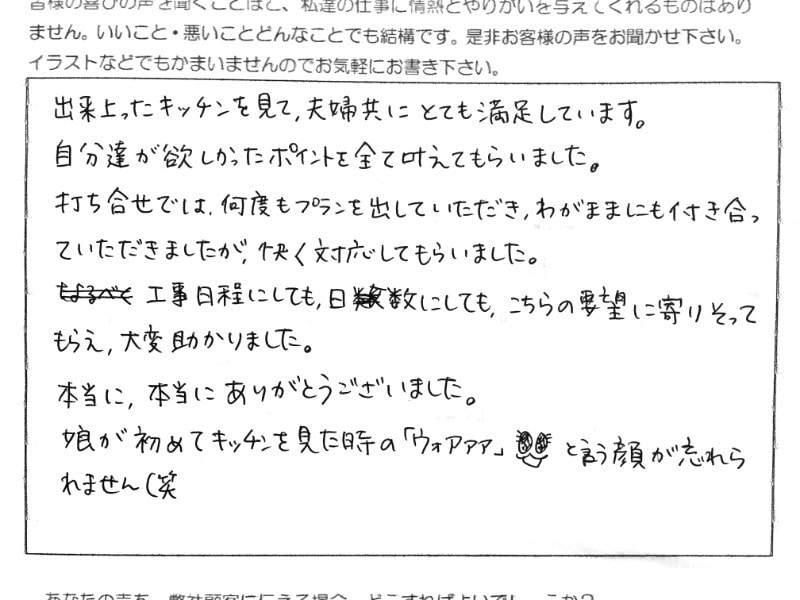 皆様の喜びの声を聞くことほど、私達の仕事に情熱とやりがいを与えてくれるものはあり
ません。いいこと・悪いことどんなことでも結構です。是非お客様の声をお聞かせ下さい。
イラストなどでもかまいませんのでお気軽にお書き下さい。
出来上ったキッチンを見て,夫婦共にとても満足しています。
自分達が欲しかったポイントを全て叶えてもらいました。
打ち合せでは,何度もプランを出していただき,わがままにも付き合っ
ていただきましたが,快く対応してもらいました。
工事日程にしても,日数にしても,こちらの要望に寄りそって
もらえ,大変助かりました。
本当に,本当にありがとうございました。
娘が初めてキッチンを見た時の「ウォアァァ」と言う顔が忘れら
れません(笑